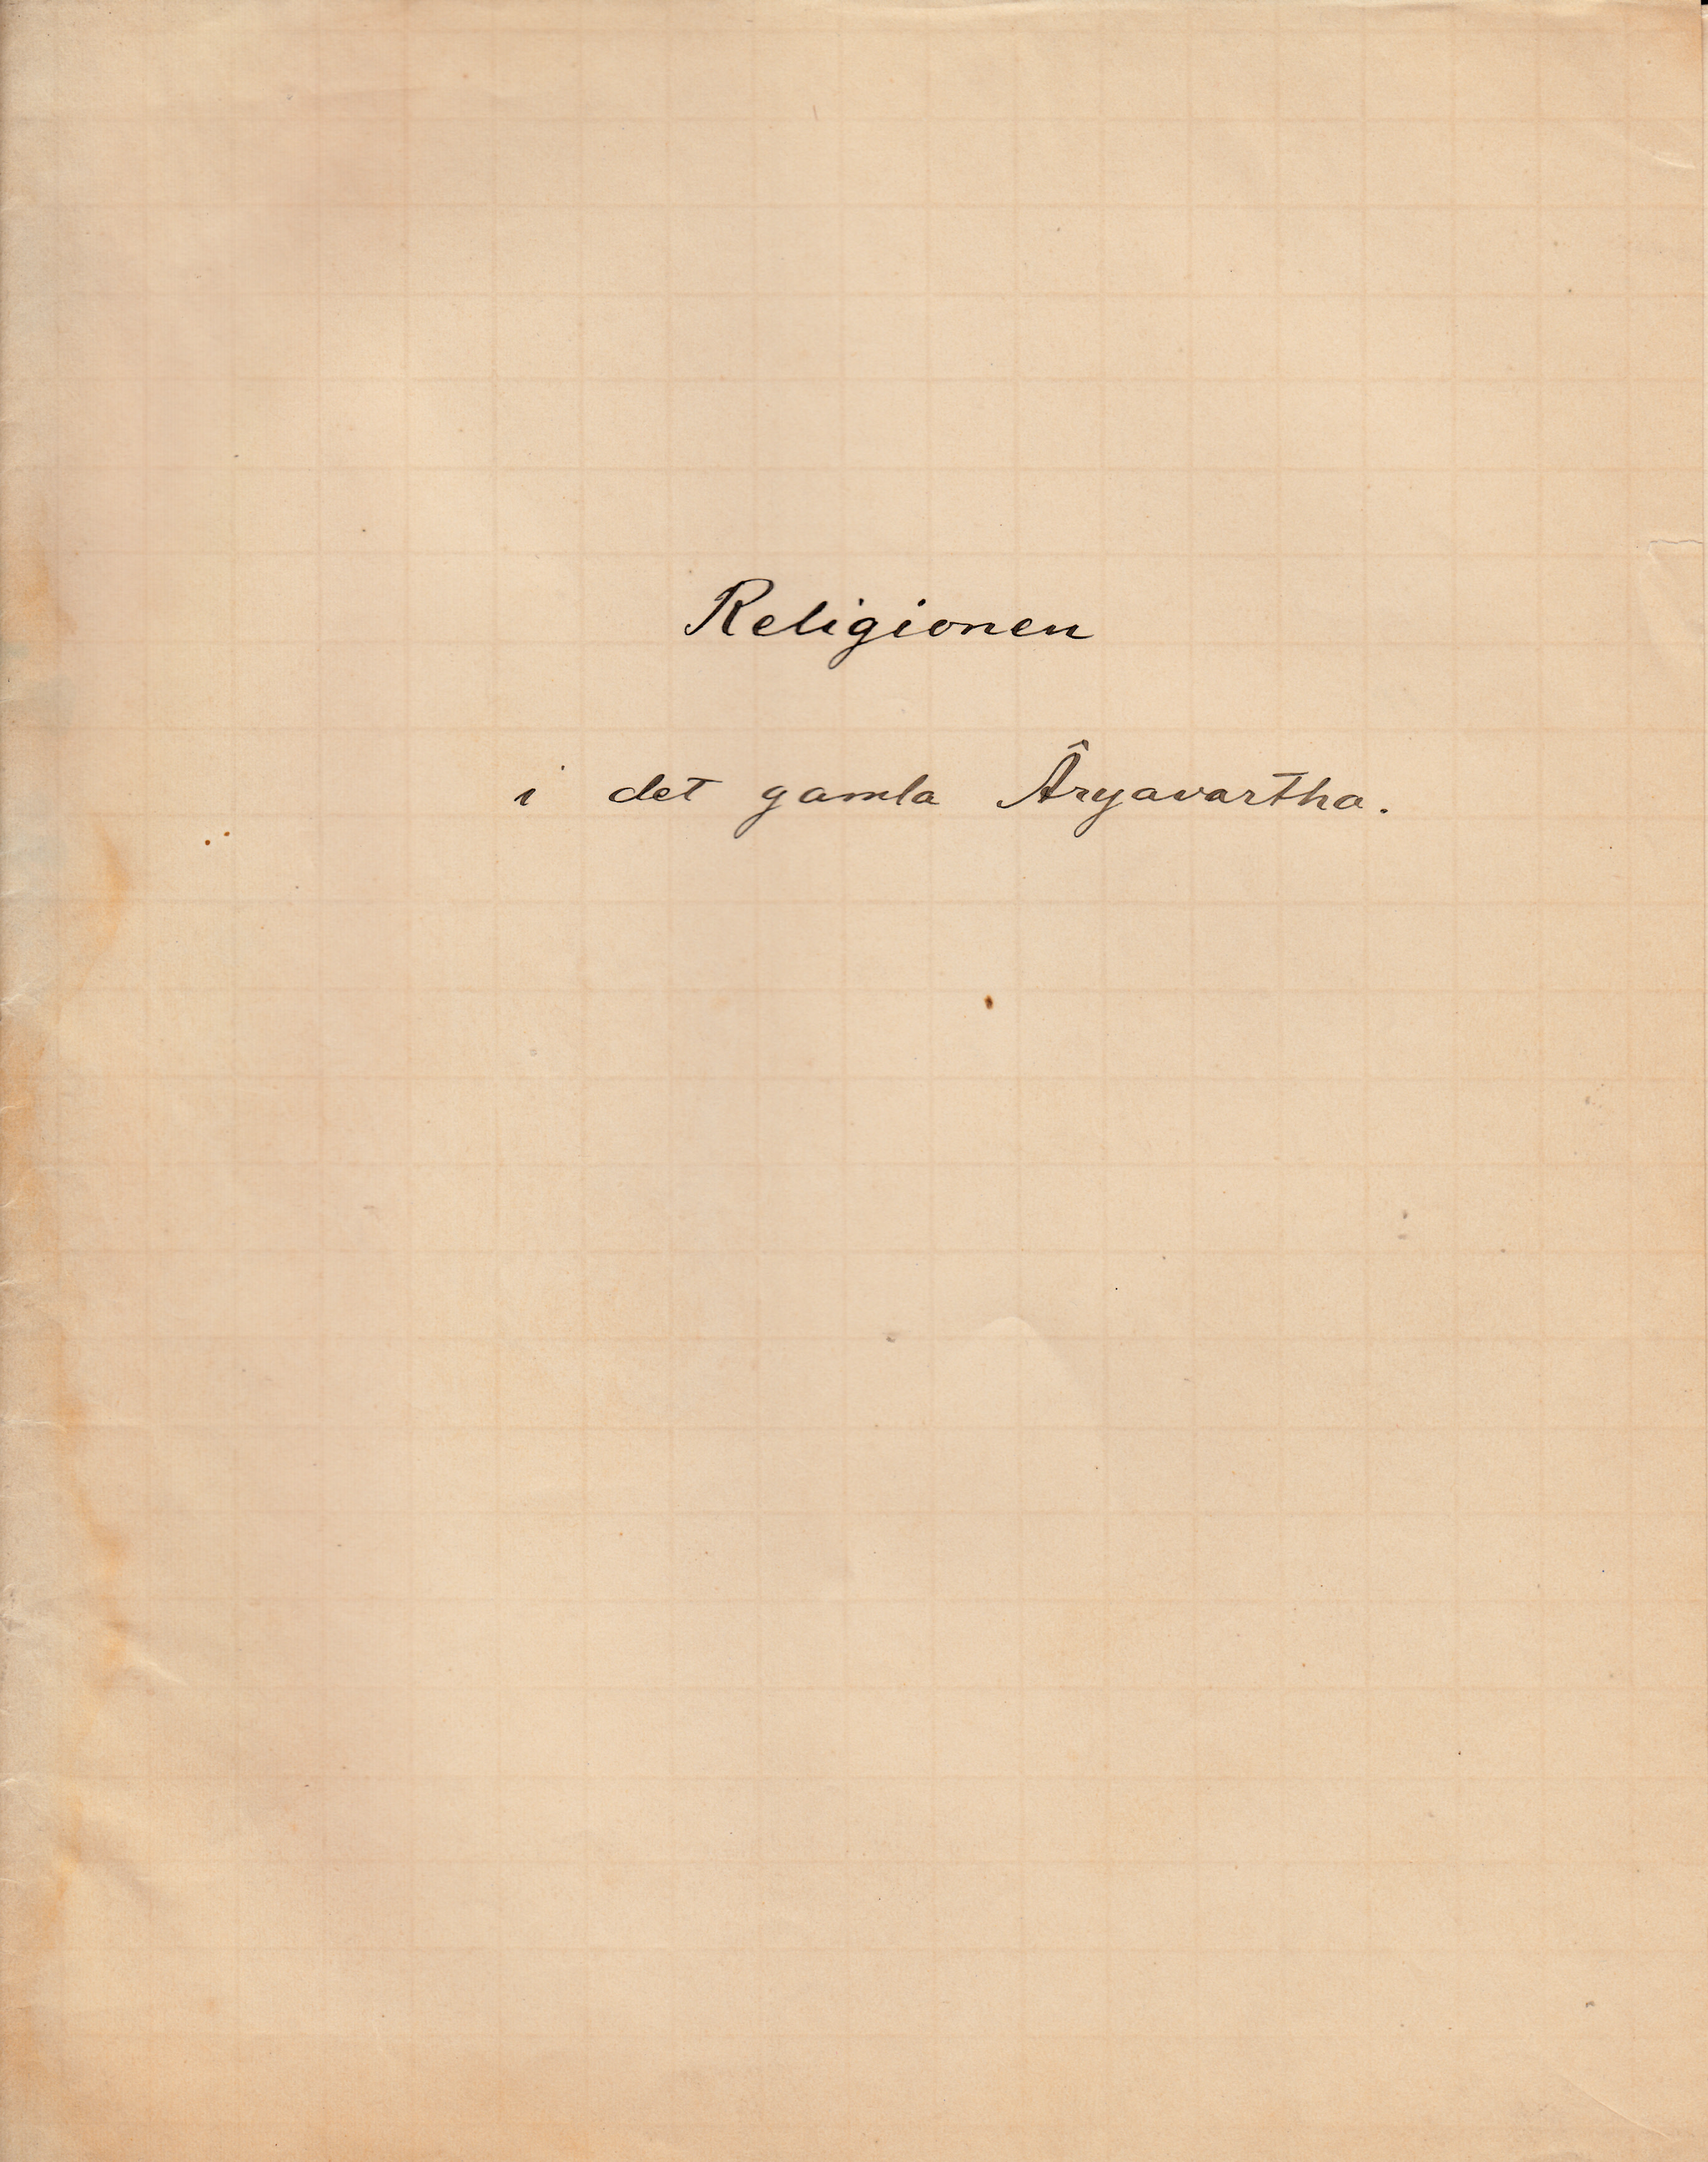 Religionen
i det gamla Âryavartha.